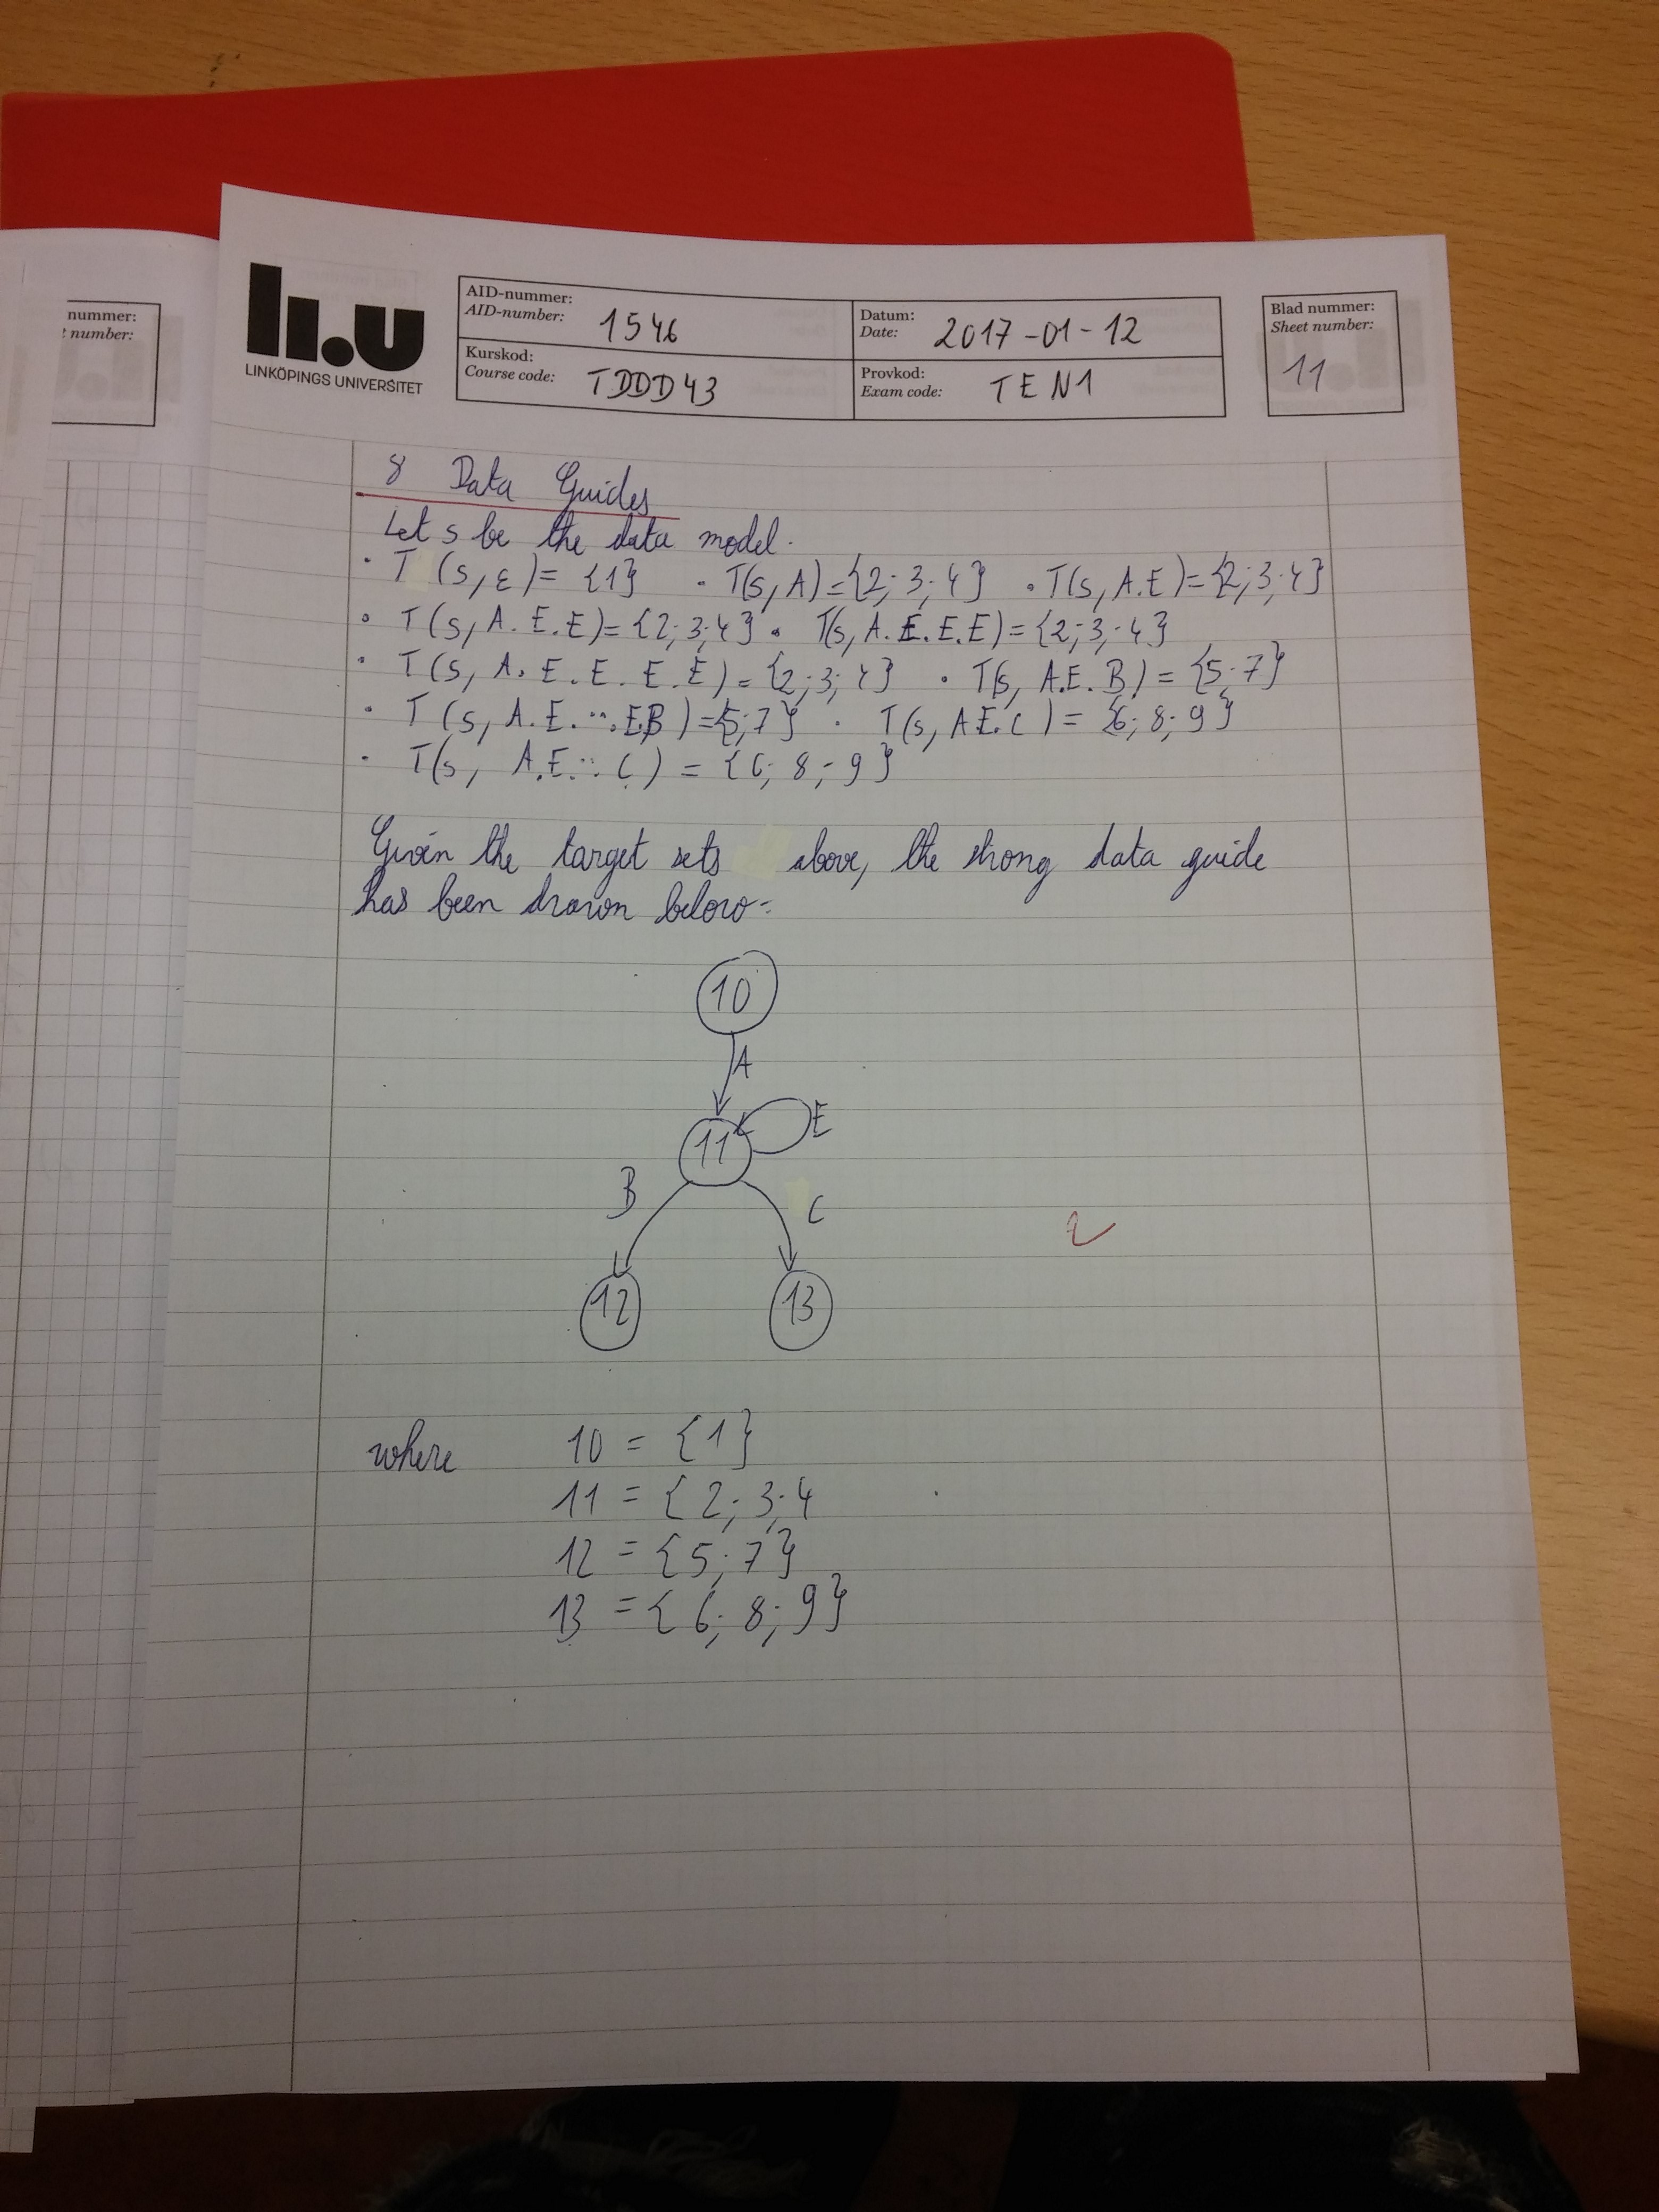 nummer:
t number:
li.u
LINKÖPINGS UNIVERSITET
AID-nummer:
AID-number: 1546
Datum:
Date: 2017-01-12
Kurskod:
Course code: TDDD43
Provkod:
Exam code: TEN1
Blad nummer:
Sheet number:
11
8 Data Guides
Let s be the data model.
· T (s, ε) = {1} · T(s, A) = {2; 3; 4} · T(s, A.E) = {2; 3; 4}
· T(s, A.E.E) = {2; 3; 4} · T(s, A.E.E.E) = {2; 3; 4}
· T(s, A.E.E.E.E) = {2; 3; 4} · T(s, A.E.B) = {5; 7}
· T(s, A.E. ... .E.B) = {5; 7} · T(s, A.E.C) = {6; 8; 9}
· T(s, A.E. ... C) = {6; 8; 9}
Given the target sets above, the strong data guide
has been drawn below:
10
A
11
E
B
C
12
13
2
where 10 = {1}
11 = {2; 3; 4
12 = {5; 7}
13 = {6; 8; 9}